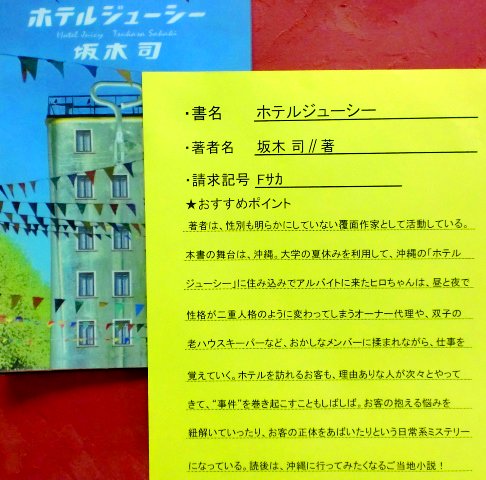 ホテルジューシー
Hotel Juicy Tsukasa Sakaki
坂木 司
・書名 ホテルジューシー
・著者名 坂木 司∥著
・請求記号 Fサカ
★おすすめポイント
著者は、性別も明らかにしていない覆面作家として活動している。
本書の舞台は、沖縄。大学の夏休みを利用して、沖縄の「ホテル
ジューシー」に住み込みでアルバイトに来たヒロちゃんは、昼と夜で
性格が二重人格のように変わってしまうオーナー代理や、双子の
老ハウスキーパーなど、おかしなメンバーに揉まれながら、仕事を
覚えていく。ホテルを訪れるお客も、理由ありな人が次々とやって
きて、“事件”を巻き起こすこともしばしば。お客の抱える悩みを
紐解いていったり、お客の正体をあばいたりという日常系ミステリー
になっている。読後は、沖縄に行ってみたくなるご当地小説！